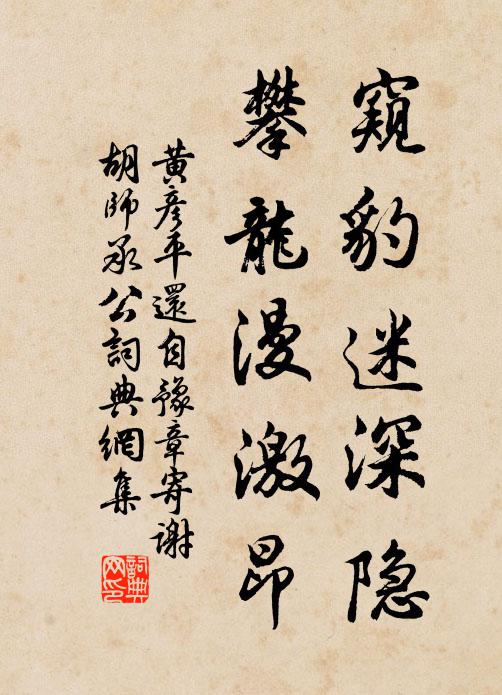 窺豹迷深隐
攀龍漫激昂
黃彦平還自豫章寄謝
胡師承公詞典網集
詞典
网印